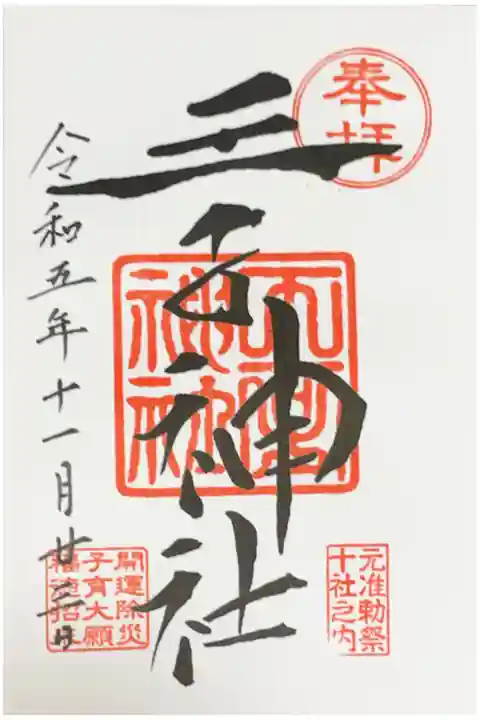 奉拝
元准勅祭
十社之内
王子神社
開運除災
子育大願
福徳招来
令和五年十一月廿三日